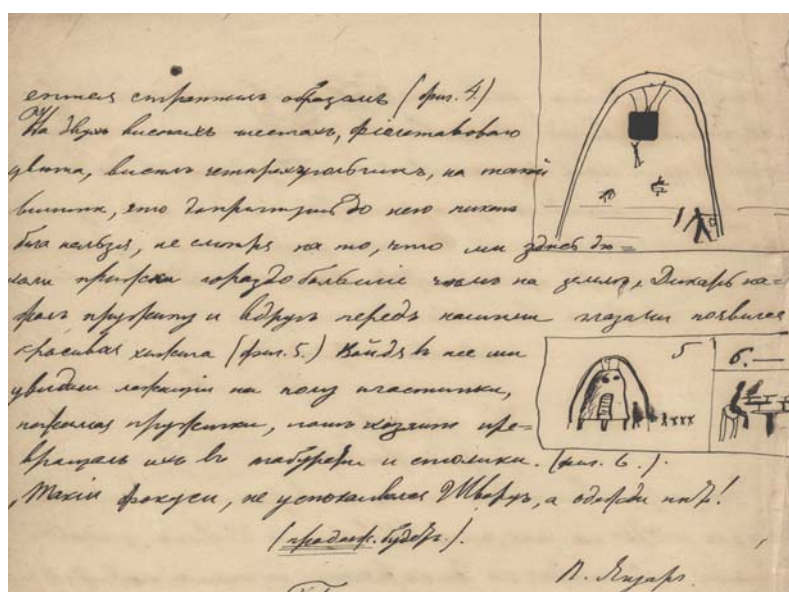 ется страннымъ образомъ (фиг. 4)
На двухъ высокихъ шестахъ, фіолетоваго
цвѣта, виситъ четырехугольникъ, на такой
вышинѣ, что допрыгнуть до него никакъ
было нельзя, не смотря на то, что мы здѣсь дѣ=
лали прыжки гораздо большіе чѣмъ на землѣ, Дикарь на=
жалъ пружину и вдругъ передъ нашими глазами появилась
красивая хижина (фиг. 5.) Войдя въ нее мы
5
6.
увидали лежащія на полу пластинки,
нажимая пружинки, нашъ хозяинъ пре=
вращалъ ихъ въ табуреты и столики. (фиг. 6.).
„Такіи фокусы, не успокаивался Шварцъ, а одежды нѣтъ!
(продолж. будетъ.).